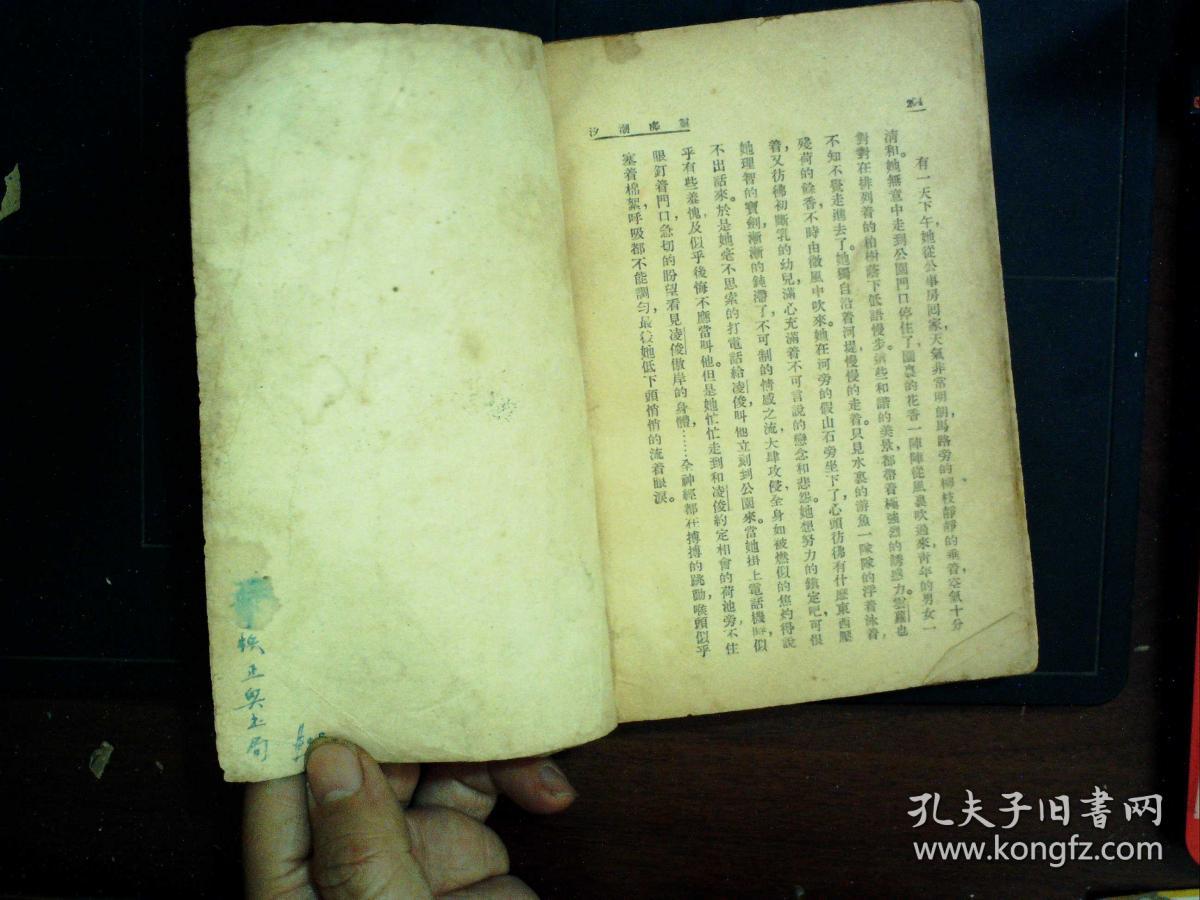 有一天下午，她從公事房回家，天氣非常明朗，馬路旁的柳枝靜靜的垂着，空氣十分
清和。她無意中走到公園門口停住了，園裏的花香一陣陣從風裏吹過來，青年的男女一
對對在排列着的柏樹蔭下低語慢步，這些和諧的美景，都帶着極強烈的誘惑力。雲蘿也
不知不覺走進去了。她獨自沿着河堤慢慢的走着。只見水裏的游魚一隊隊的浮着泳着，
殘荷的餘香，不時由微風中吹來。她在河旁的假山石旁坐下了，心頭彷彿有什麼東西壓
着，又彷彿初斷乳的幼兒滿心充滿着不可言說的戀念和悲怨。她想努力的鎮定吧，可恨
她理智的寶劍，漸漸的鈍滯了，不可制的情感之流，大肆攻侵，全身如被燃似的焦灼得說
不出話來。於是她毫不思索的打電話給凌俊，叫他立刻到公園來。當她掛上電話機時，似
乎有些羞愧，及似乎後悔不應當叫他。但是她忙忙走到和凌俊約定相會的荷池旁，不住
眼釘着門口，急切的盼望看見凌俊傲岸的身體……全神經都在搏搏的跳動，喉頭似乎
塞着棉絮，呼吸都不能調勻，最後她低下頭悄悄的流着眼淚。
汐 潮
局
孔夫子旧书网
www.kongfz.com